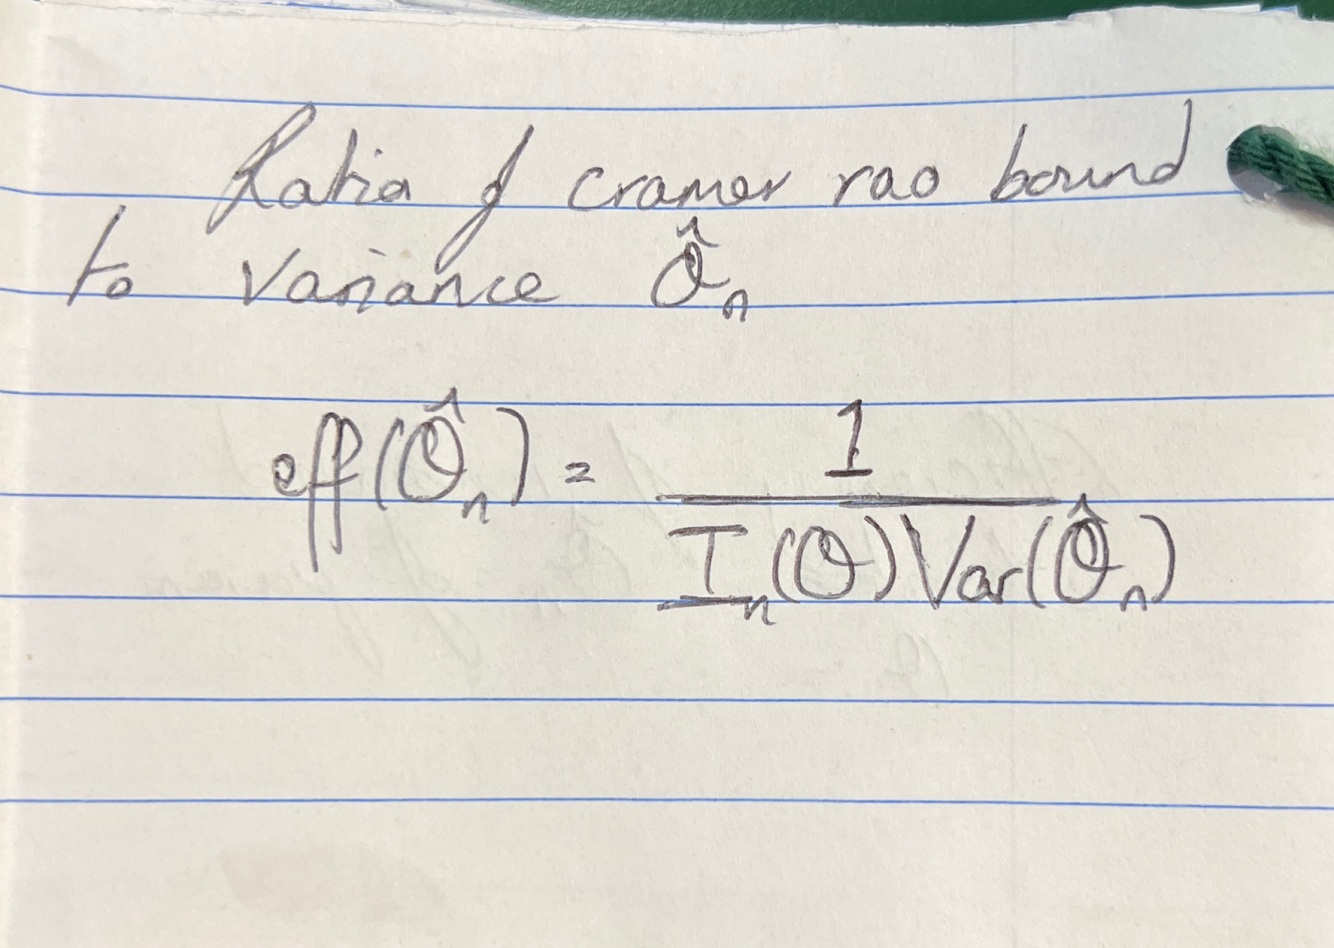 Ratio of cramer rao bound
to variance θ̂ₙ
eff(θ̂ₙ) = 1 / (Iₙ(θ) Var(θ̂ₙ))